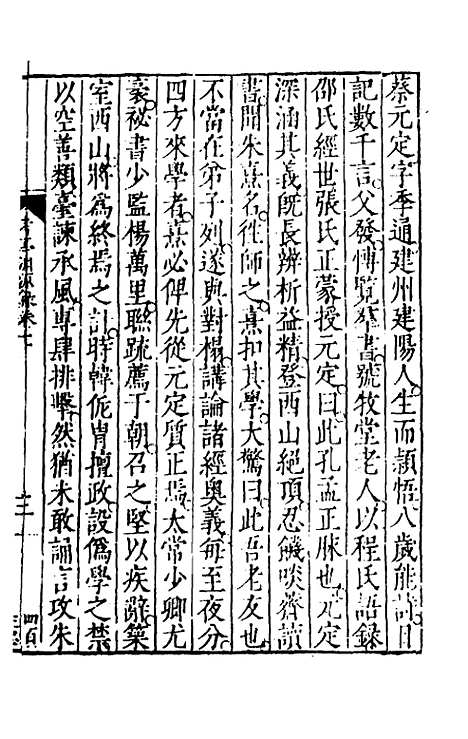 蔡元定字季通建州建陽人生而頴悟八歲能詩日
記數千言父發愽覽羣書號牧堂老人以程氏語錄
邵氏經世張氏正蒙授元定曰此孔孟正脉也元定
深涵其義旣長辨析益精登西山絕頂忍饑啖薺讀
書聞朱熹名徃師之熹扣其學大驚曰此吾老友也
不當在弟子列遂與對榻講論諸經奥義每至夜分
四方來學者熹必俾先從元定質正焉太常少卿尤
袤祕書少監楊萬里聮疏薦于朝召之堅以疾辭築
室西山將爲終焉之計時韓侂胄擅政設僞學之禁
以空善類臺諫承風專肆排擊然猶未敢誦言攻朱
考亭淵源錄卷十